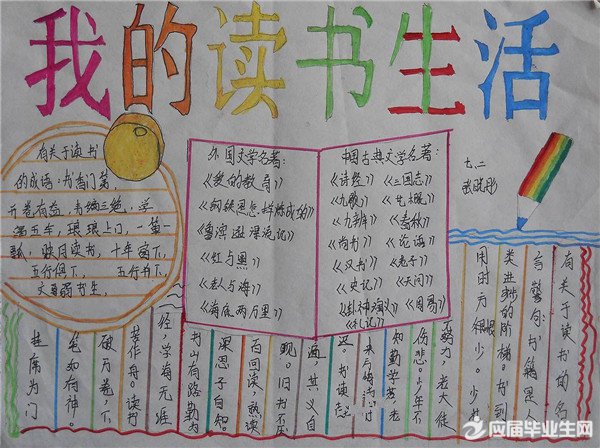 我的读书生活
有关于读书
的成语：书香门第，
开卷有益，韦编三绝，学
富五车，琅琅上口，一
映月读书，十年窗下，
五行俱下，
文弱书生，
外国文学名著：
《爱的教育》
《钢铁是怎样炼成的》
《鲁滨逊漂流记》
《红与黑》
《老人与海》
《海底两万里》
中国古典文学名著：
《诗经》《三国志》
《九歌》
《九辩》《春秋》
《尚书》《论语》
《汉书》《老子》
《史记》《天问》
《封神演义》《周易》
《礼记》
七、二
有关于读书的名
言警句：书籍是人
类进步的阶梯。书到
用时方恨少。少壮
不努力，老大徒
伤悲。少年不
知勤学苦，老
来方悔读书
迟。书读百
遍，其义自
现。旧书不厌
百回读，熟读
深思子自知。
书山有路勤为
径，学海无涯
苦作舟。读书
破万卷，下
笔如有神。
挂席为门
应届毕业生网